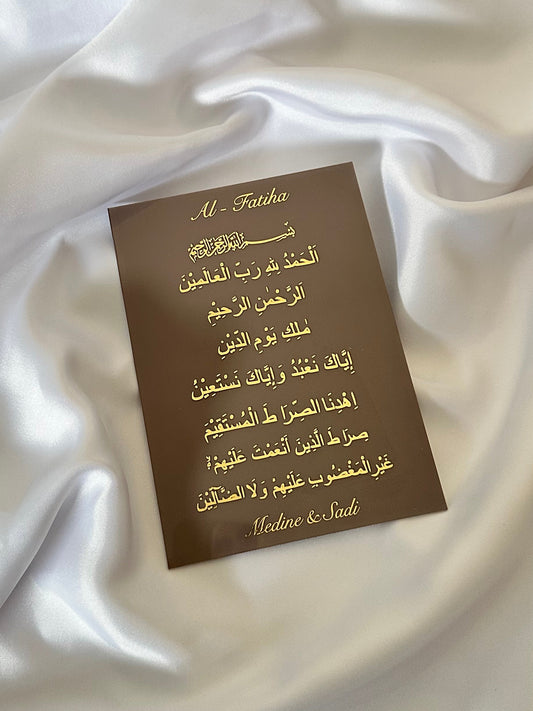 Al - Fatiha
بِسْمِ اللهِ الرَّحْمٰنِ الرَّحِيْمِ
اَلْحَمْدُ لِلهِ رَبِّ الْعَالَمِيْنَ
اَلرَّحْمٰنِ الرَّحِيْمِ
مٰلِكِ يَوْمِ الدِّيْنِ
اِيَّاكَ نَعْبُدُ وَاِيَّاكَ نَسْتَعِيْنُ
اِهْدِنَا الصِّرَاطَ الْمُسْتَقِيْمَ
صِرَاطَ الَّذِينَ اَنْعَمْتَ عَلَيْهِمْ
غَيْرِ الْمَغْضُوبِ عَلَيْهِمْ وَلَا الضَّالِّيْنَ
Medine & Sadi